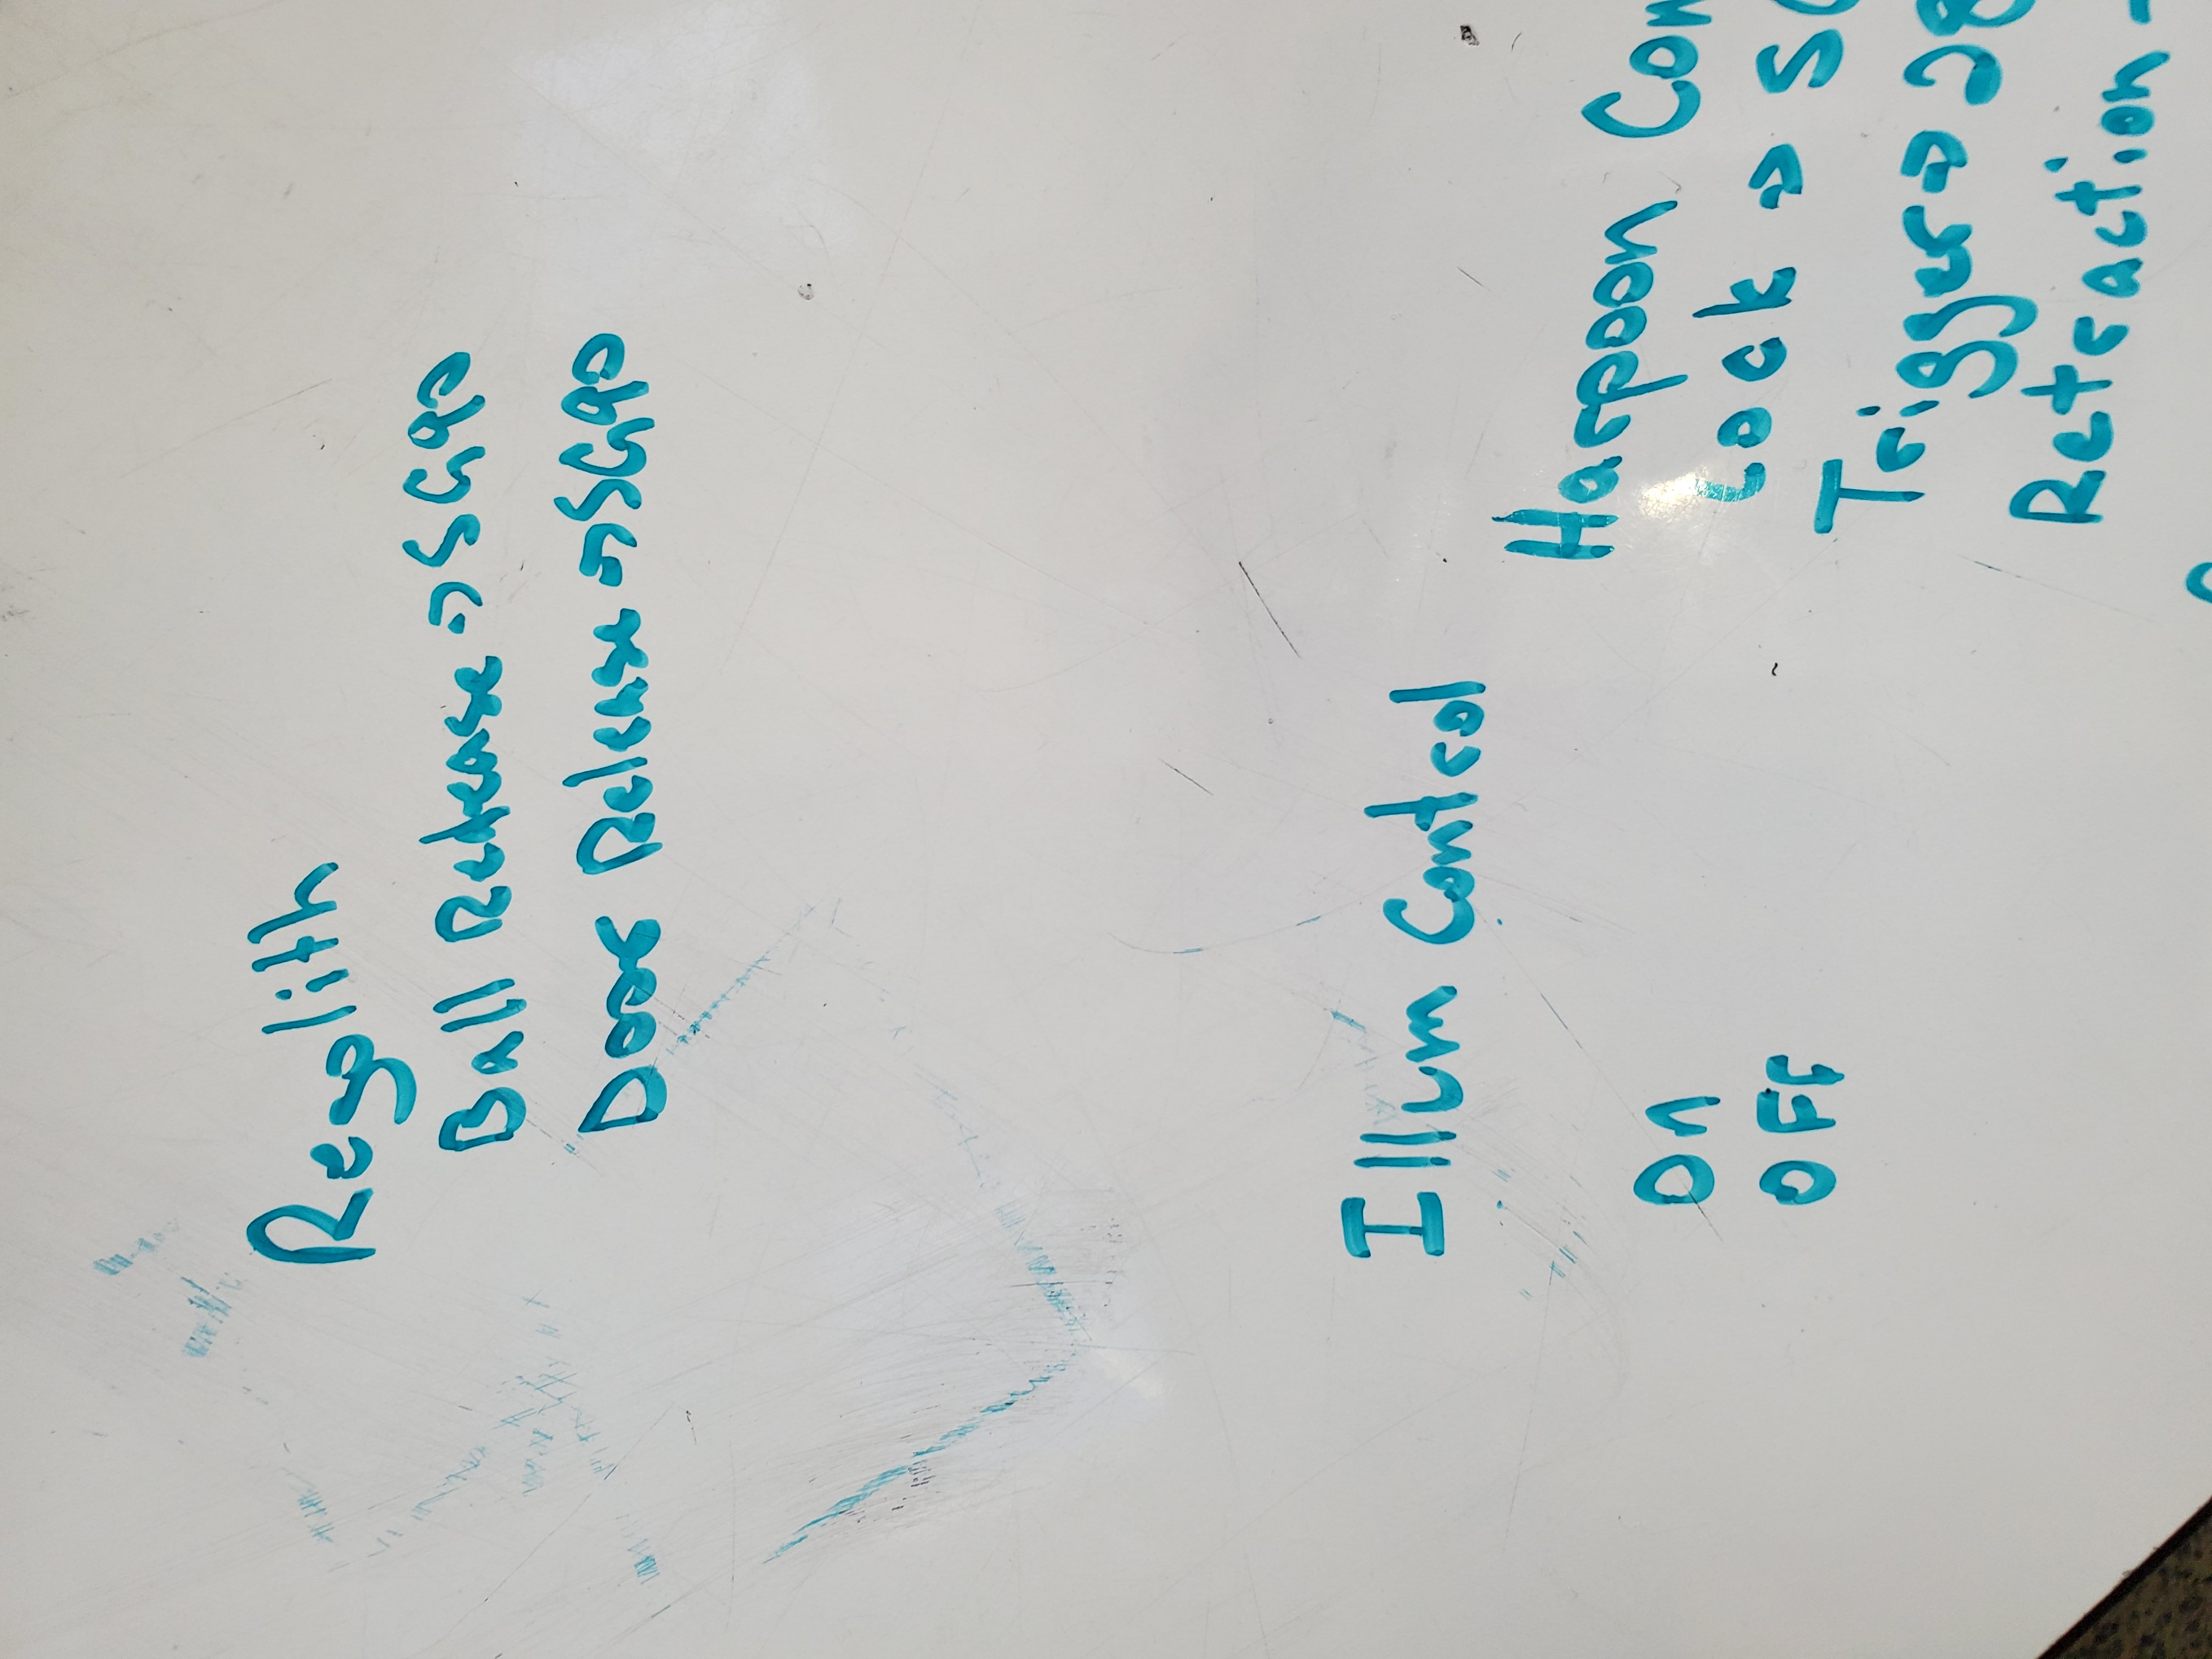 Regolith
Ball Release => SG90
Door Release => SG90
Illum Control
On
OFF
Harpoon Con
Lock => SG
Trigger => 28
Retraction -